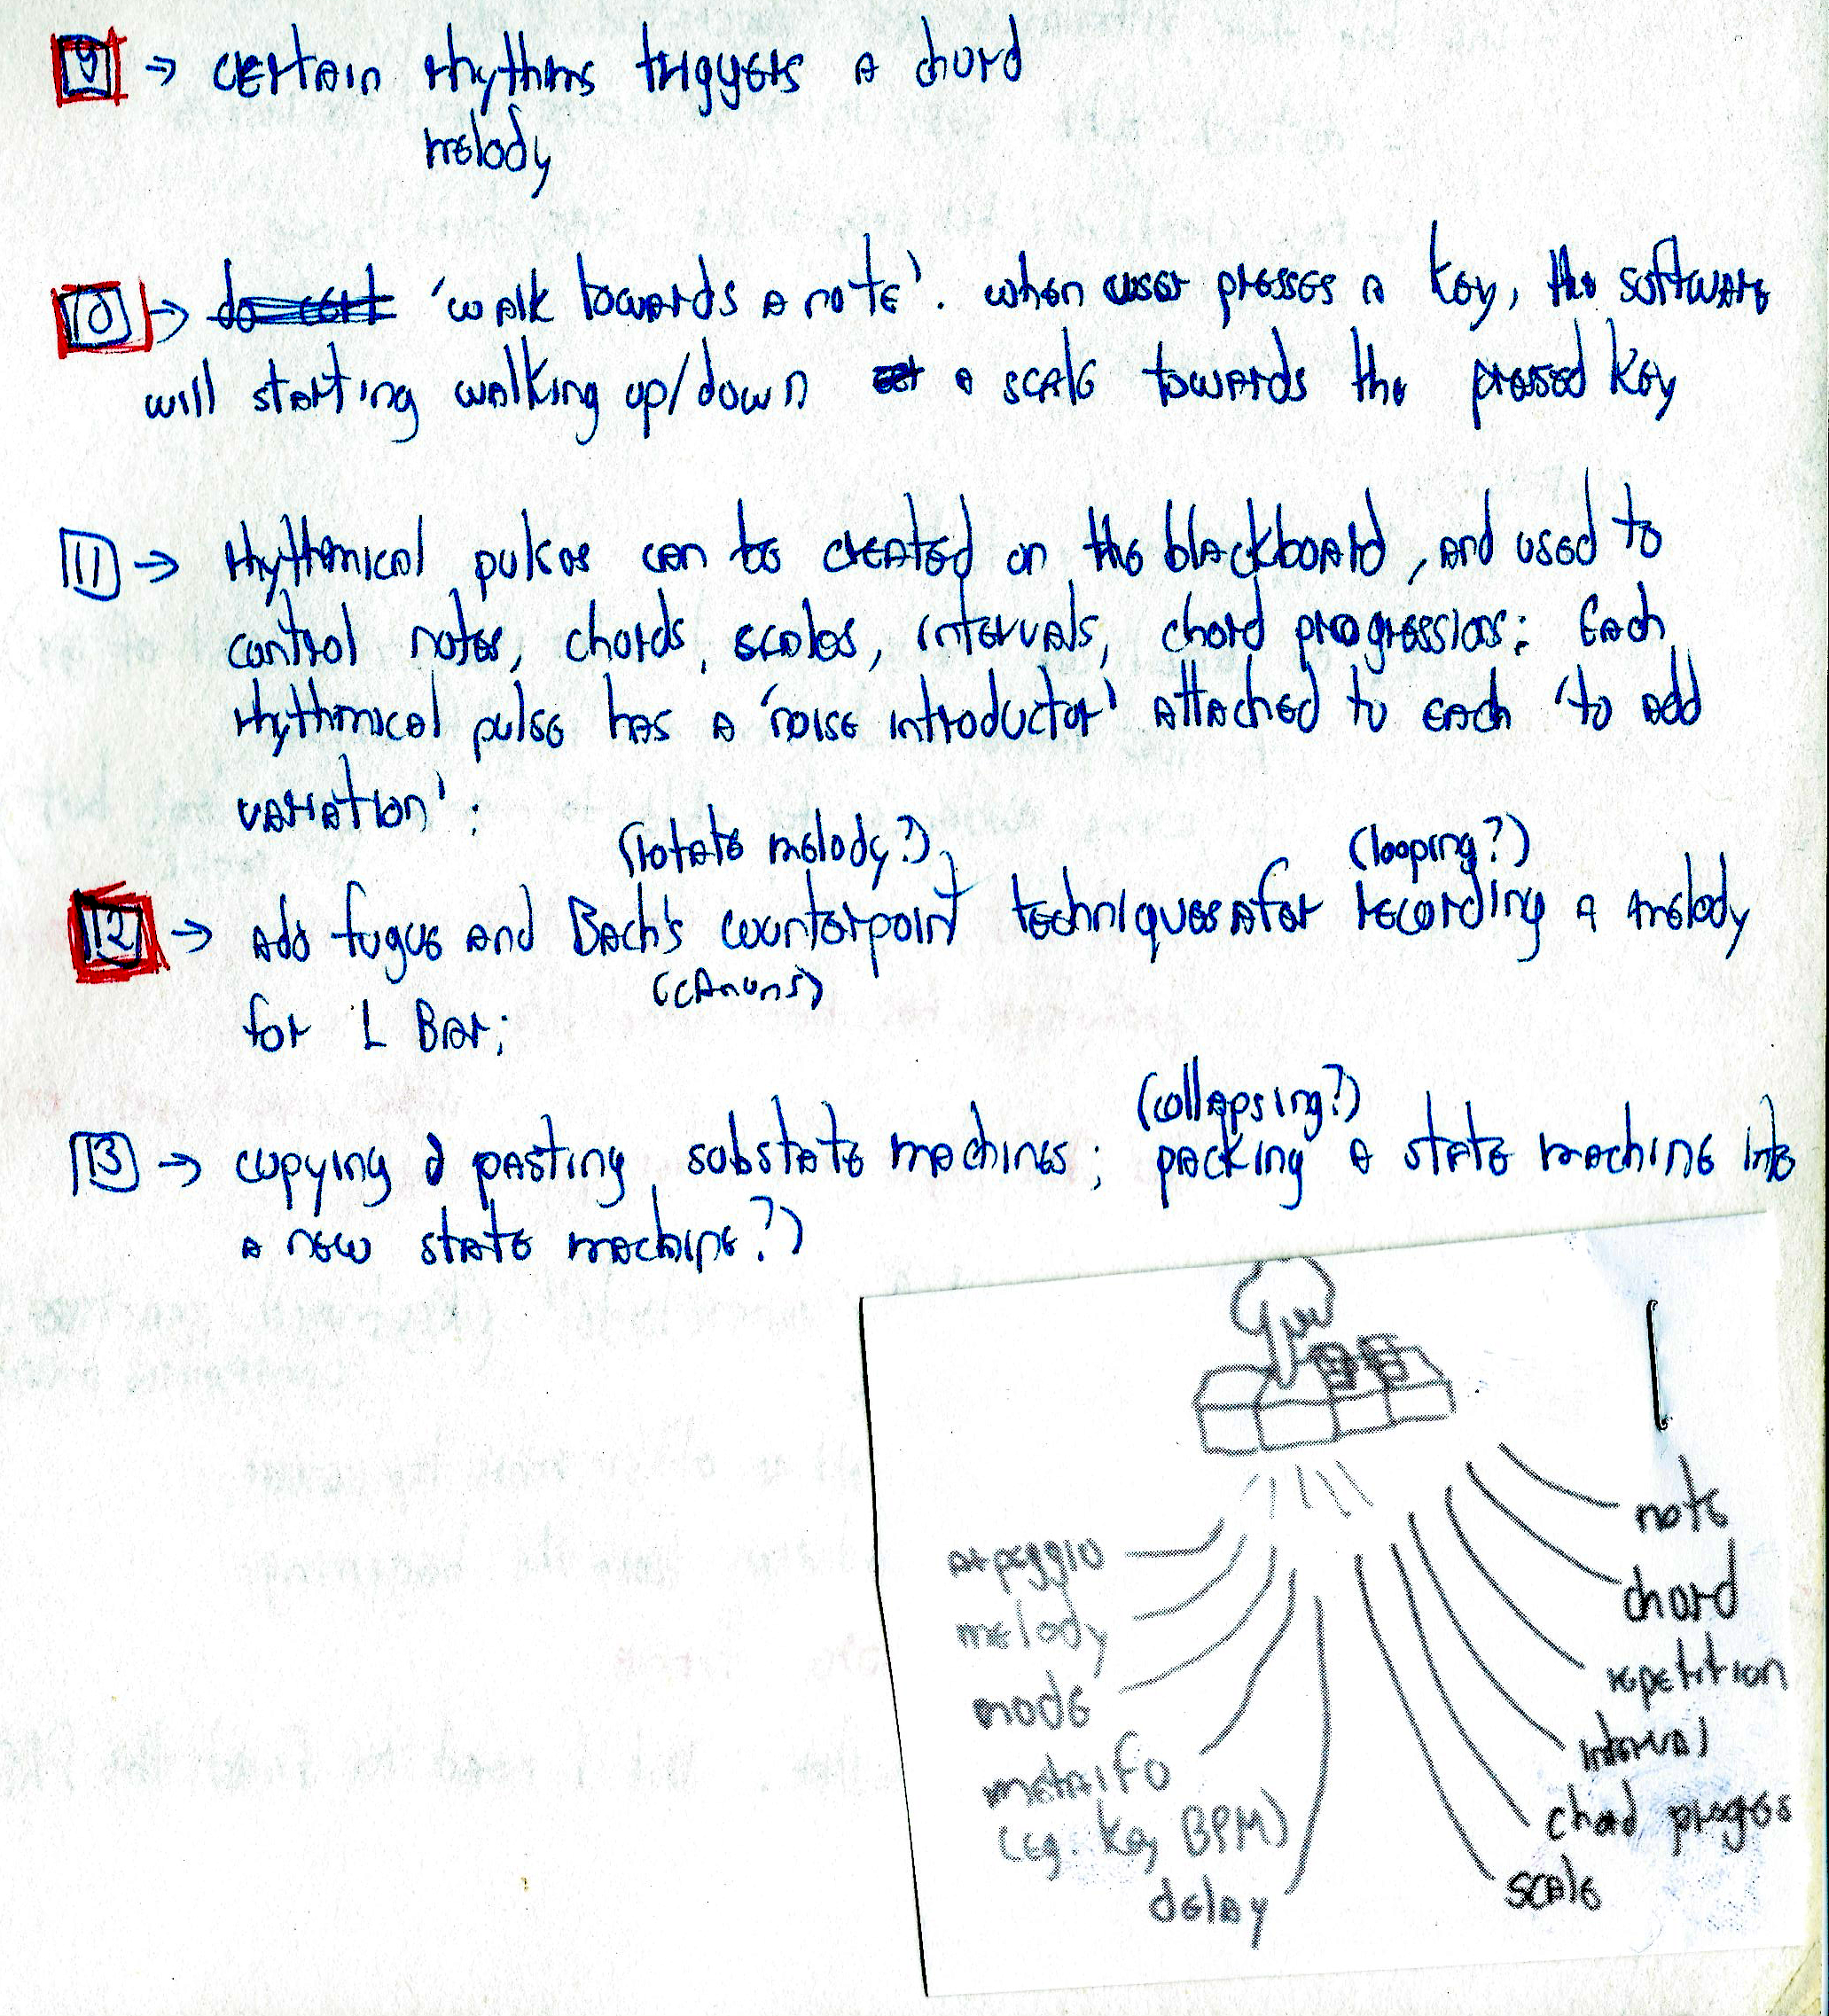 9 → certain rhythms triggers a chord
melody
10 → 'walk towards a note'. when user presses a key, the software
will starting walking up/down a scale towards the pressed key
11 → rhythmical pulses can be created on the blackboard, and used to
control notes, chords, scales, intervals, chord progressions: Each
rhythmical pulse has a 'noise introductor' attached to each 'to add
variation';
(rotate melody?) (looping?)
12 → add fugue and Bach's counterpoint techniques after recording a melody
(canons)
for 1 Bar;
(collapsing?)
13 → copying & pasting substate machines; packing a state machine into
a new state machine?)
note
arpeggio
chord
melody
repetition
mode
interval
metaifo
chord progres
(eg. key BPM)
scale
delay